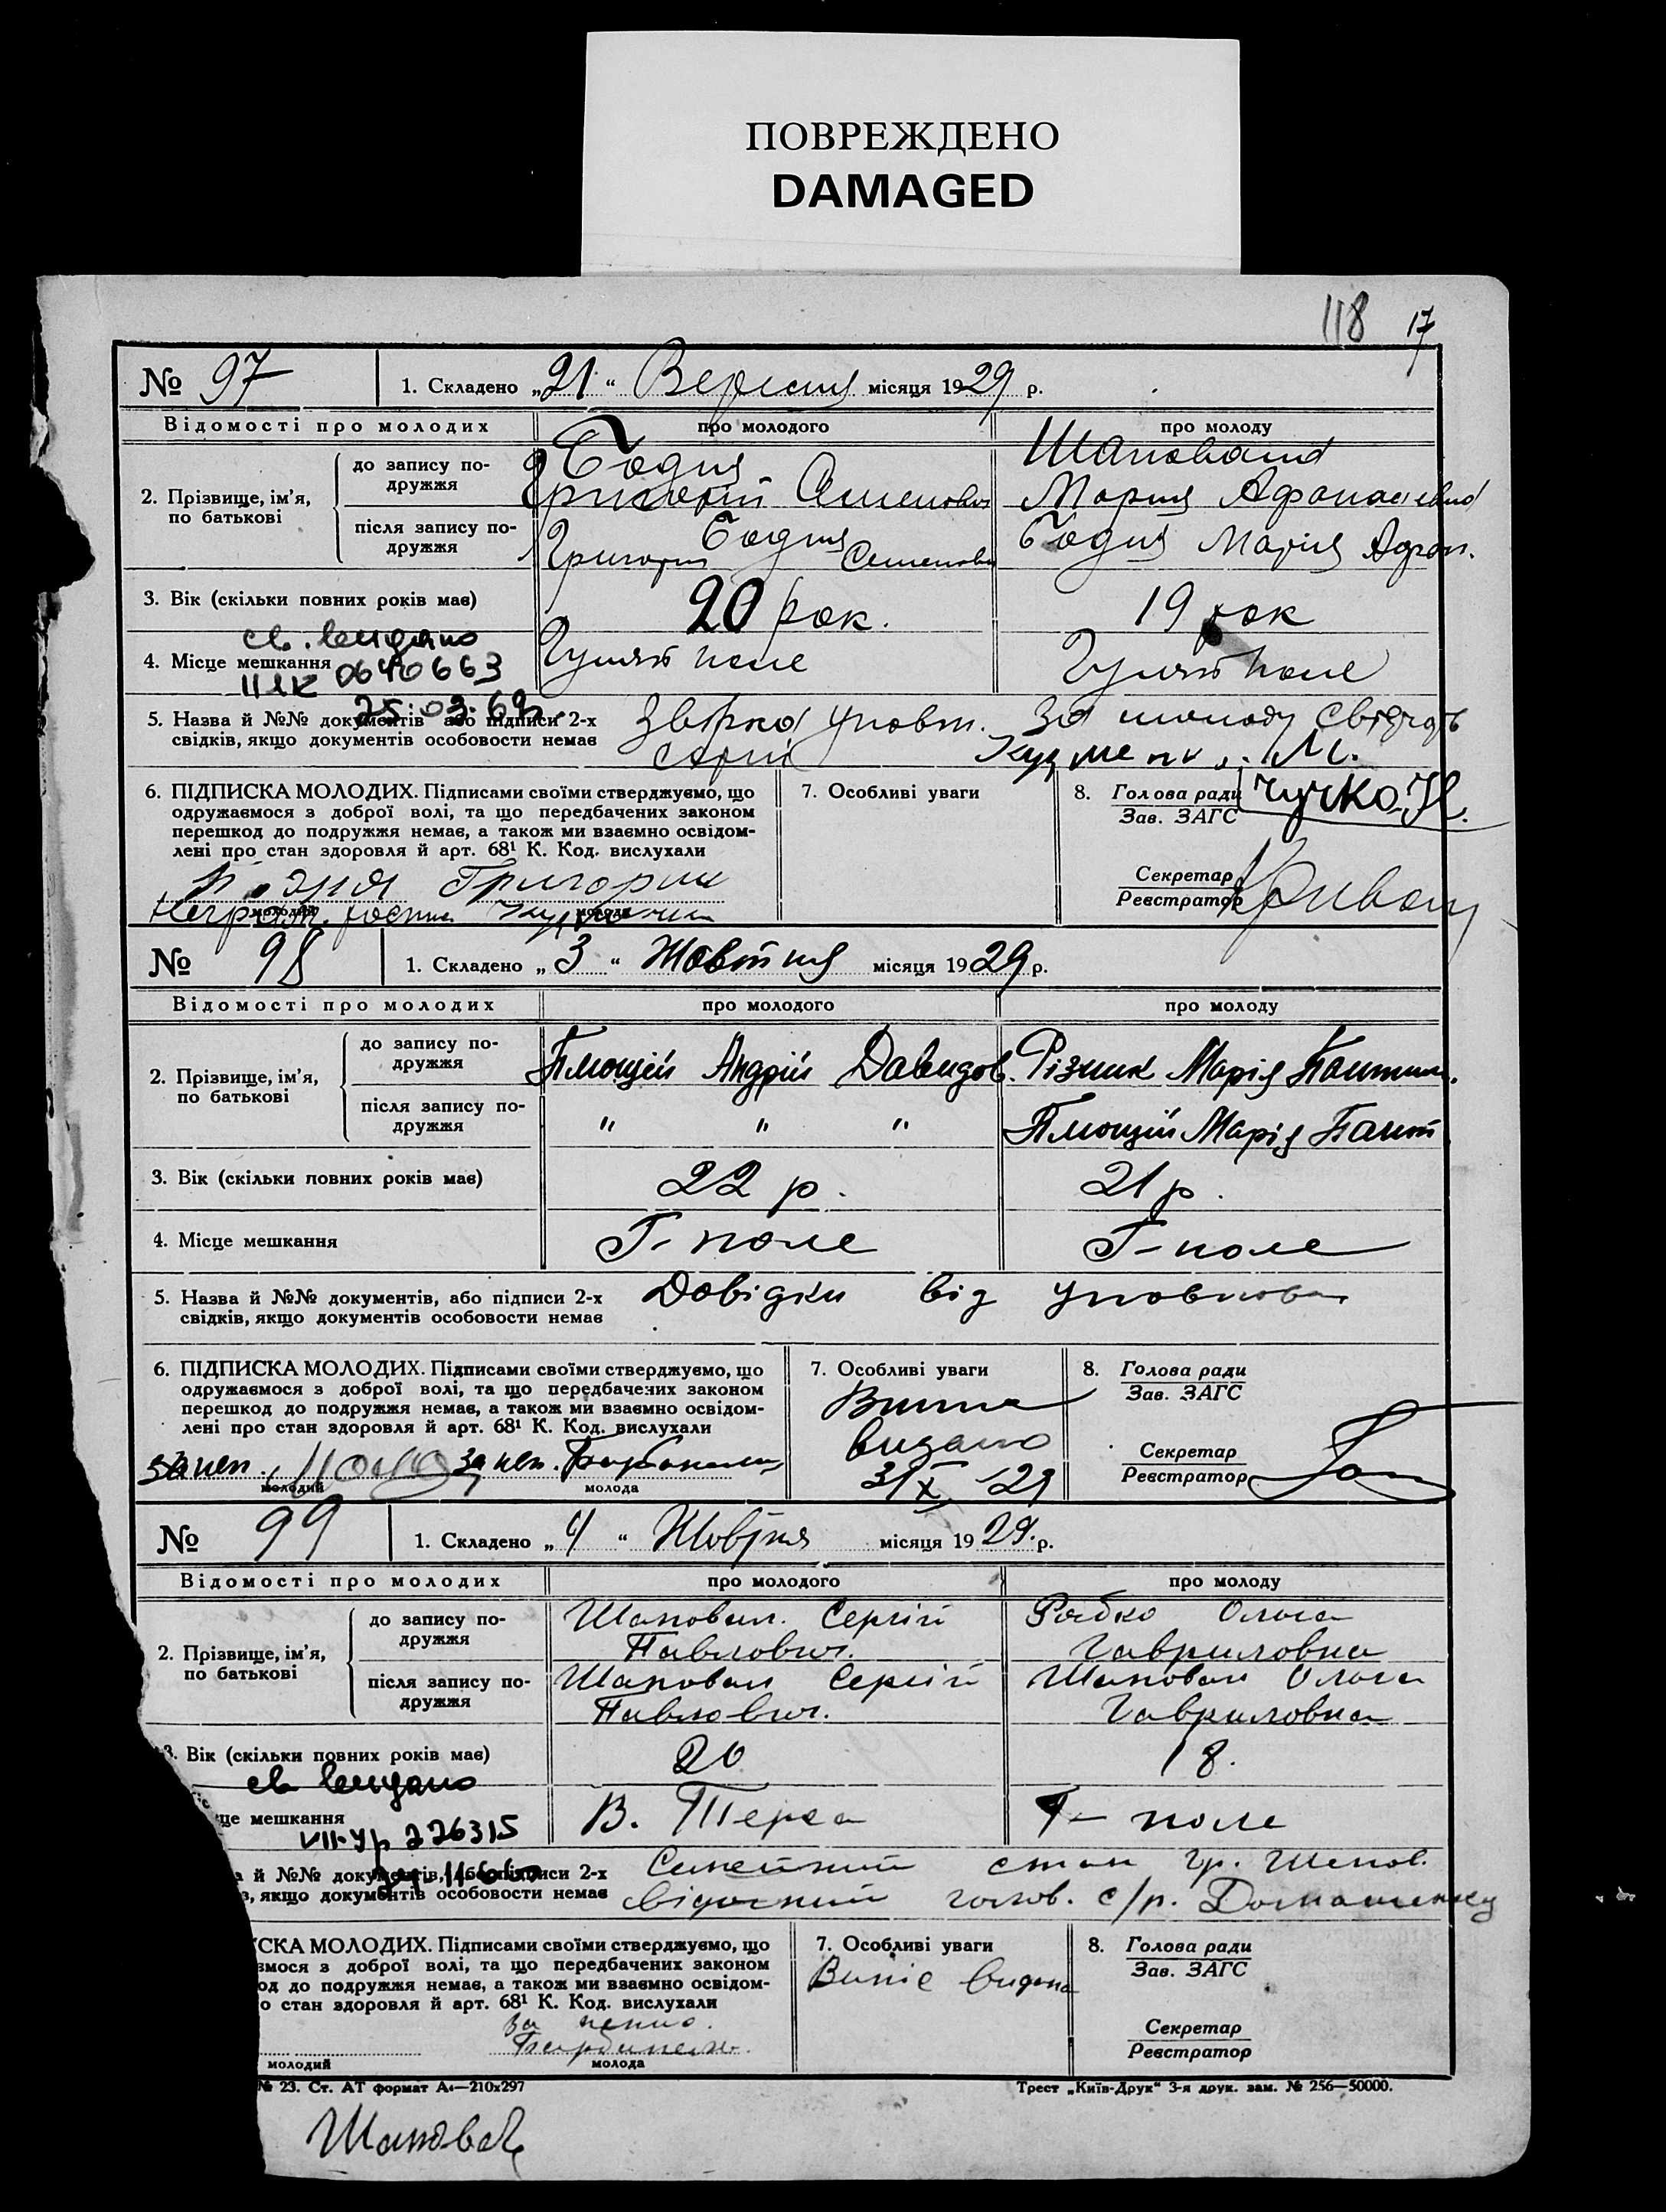 ПОВРЕЖДЕНО
DAMAGED
118 17
№ 97 1. Складено „21“ Вересня місяця 1929 р.
Відомості про молодих про молодого про молоду
2. Прізвище, ім’я, по батькові
до запису подружжя Бодня Григорій Семенович Шаповал Мария Афанасіевна
після запису подружжя Бодня Григорій Семенович Бодня Марія Афан.
3. Вік (скільки повних років має) 20 рок. 19 рок
св. видано
4. Місце мешкання Гуляй поле Гуляй поле
0640663
25.03.69
5. Назва й №№ документів або підписи 2-х Звірка уповн. За молоду свідчать
свідків, якщо документів особовости немає Кузменко М.
6. ПІДПИСКА МОЛОДИХ. Підписами своїми стверджуємо, що 7. Особливі уваги 8. Голова ради Чучко Н.
одружаємося з доброї волі, та що передбачених законом Зав. ЗАГС
перешкод до подружжя немає, а також ми взаємно освідом-
лені про стан здоровля й арт. 68¹ К. Код. вислухали
Секретар
Реєстратор
Бодня Григорий
молодий молода
№ 98 1. Складено „3“ Жовтня місяця 1929 р.
Відомості про молодих про молодого про молоду
2. Прізвище, ім’я, по батькові
до запису подружжя Плющій Андрій Давидов. Різник Марія Пантил.
після запису подружжя " " " Плющій Марія Пант
3. Вік (скільки повних років має) 22 р. 21 р.
4. Місце мешкання Г-поле Г-поле
5. Назва й №№ документів, або підписи 2-х Довідки від уповнов
свідків, якщо документів особовости немає
6. ПІДПИСКА МОЛОДИХ. Підписами своїми стверджуємо, що 7. Особливі уваги 8. Голова ради
одружаємося з доброї волі, та що передбачених законом Зав. ЗАГС
перешкод до подружжя немає, а також ми взаємно освідом-
лені про стан здоровля й арт. 68¹ К. Код. вислухали
видано
31/X 29
Секретар
Реєстратор
за неп. за неп.
молодий молода
№ 99 1. Складено „4“ Жовтня місяця 1929. р.
Відомості про молодих про молодого про молоду
2. Прізвище, ім’я, по батькові
до запису подружжя Шаповал. Сергій Павлович. Рябко Ольга Гавриловна
після запису подружжя Шаповал Сергій Павлович. Шаповал Ольга Гавриловна
3. Вік (скільки повних років має) 20 18.
св видано
це мешкання В. Терса Г-поле
VII-Ур 226315
й №№ документів, або підписи 2-х Семейний стан гр. Шапов.
, якщо документів особовости немає голов. с/р. Домашенку
СКА МОЛОДИХ. Підписами своїми стверджуємо, що 7. Особливі уваги 8. Голова ради
ємося з доброї волі, та що передбачених законом Зав. ЗАГС
од до подружжя немає, а також ми взаємно освідом-
о стан здоровля й арт. 68¹ К. Код. вислухали
Випіс видана
Секретар
Реєстратор
за непис.
молодий молода
№ 23. Ст. АТ формат А₄—210х297 Трест „Київ-Друк“ 3-я друк. зам. № 256—50000.
Шаповал